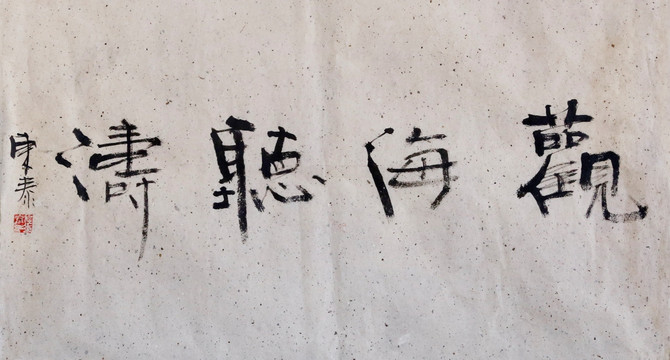 觀海聽濤
東泰